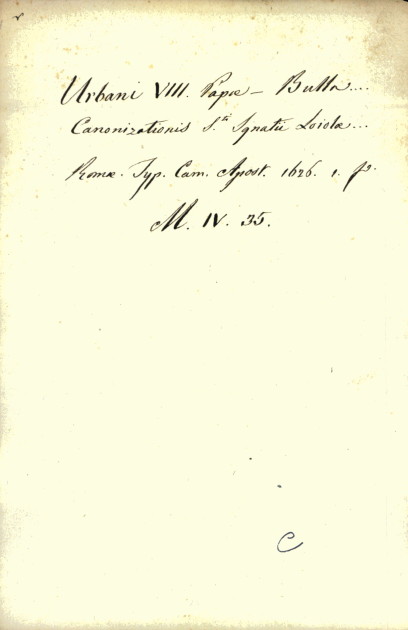 Urbani VIII. Papæ – Bulla....
Canonizationis S.ti Ignatii Loiolæ...
Romæ. Typ. Cam. Apost. 1626. 1. fº.
M. IV. 35.
C